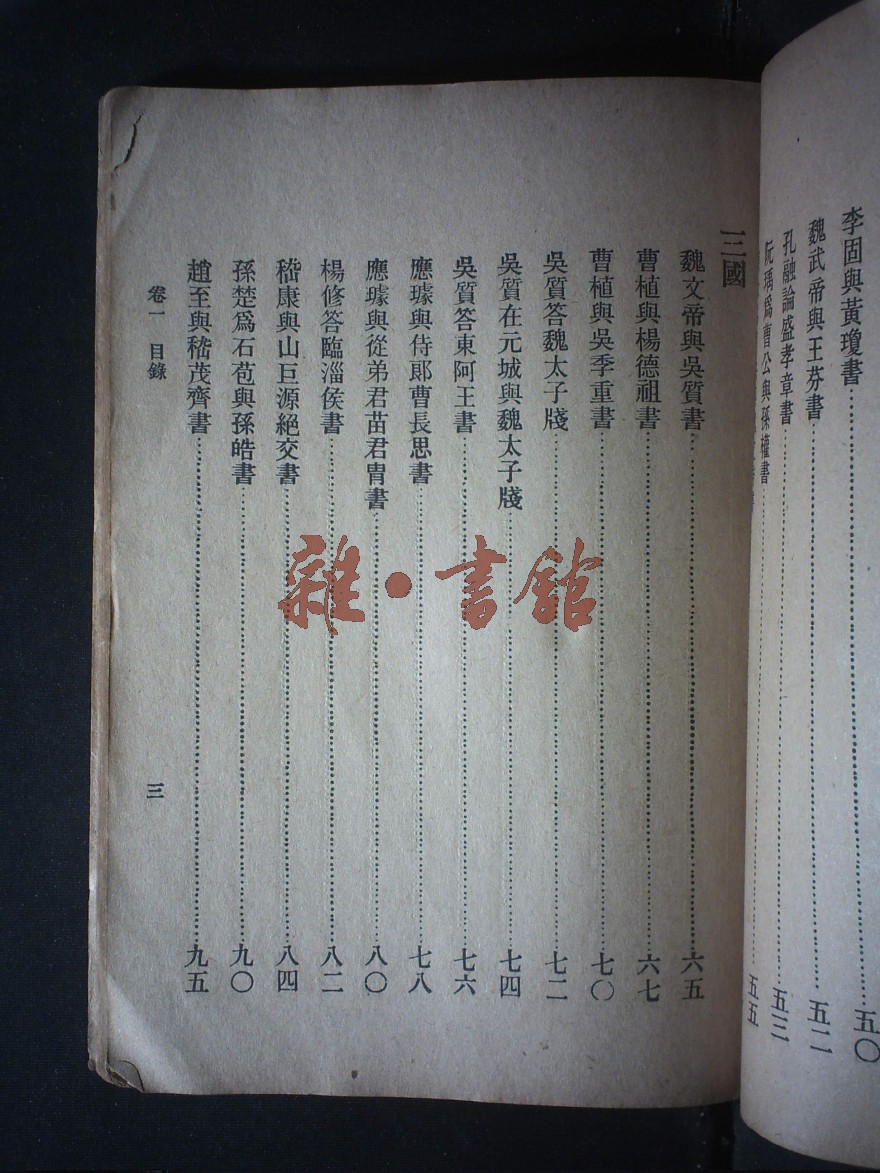 李固與黃瓊書……五〇
魏武帝與王芬書……五二
孔融論盛孝章書……五三
阮瑀爲曹公與孫權書……五五
三國
魏文帝與吳質書……六五
曹植與楊德祖書……六七
曹植與吳季重書……七〇
吳質答魏太子牋……七二
吳質在元城與魏太子牋……七四
吳質答東阿王書……七六
應璩與侍郎曹長思書……七八
應璩與從弟君苗君胄書……八〇
楊修答臨淄侯書……八二
嵇康與山巨源絕交書……八四
孫楚爲石苞與孫皓書……九〇
趙至與嵇茂齊書……九五
卷一 目錄
三
雜·書館